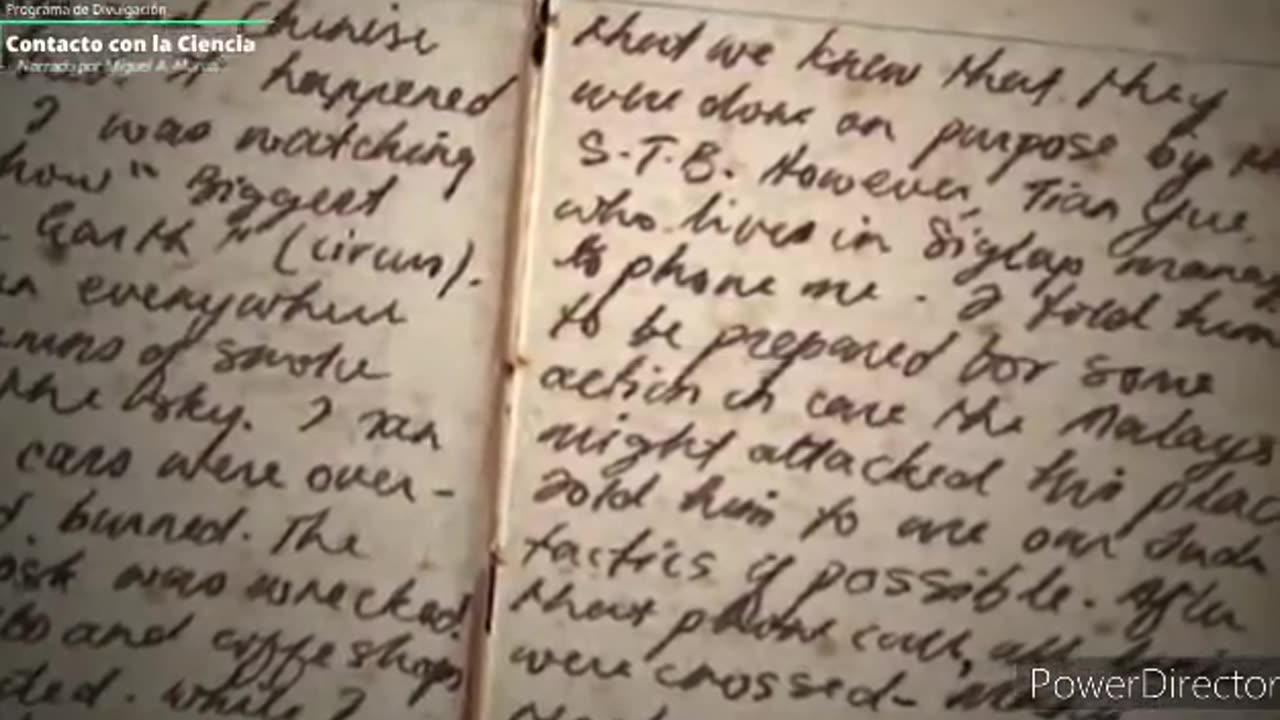 Programa de Divulgación
Contacto con la Ciencia
Narrado por Miguel A.
Chinese
happened
I was watching
how" Biggest
Earth" (circus).
everywhere
of smoke
the sky. I ran
cars were over-
burned. The
was wrecked
and coffeshops
while I
that we knew that they
were done on purpose by
S.T.B. However, Tian Yue
who lives in Siglap
to phone me. I told him
to be prepared for some
action in case the Malays
might attacked this
told him to use our
tactics if possible. After
that phone call, all
were crossed-
PowerDirector